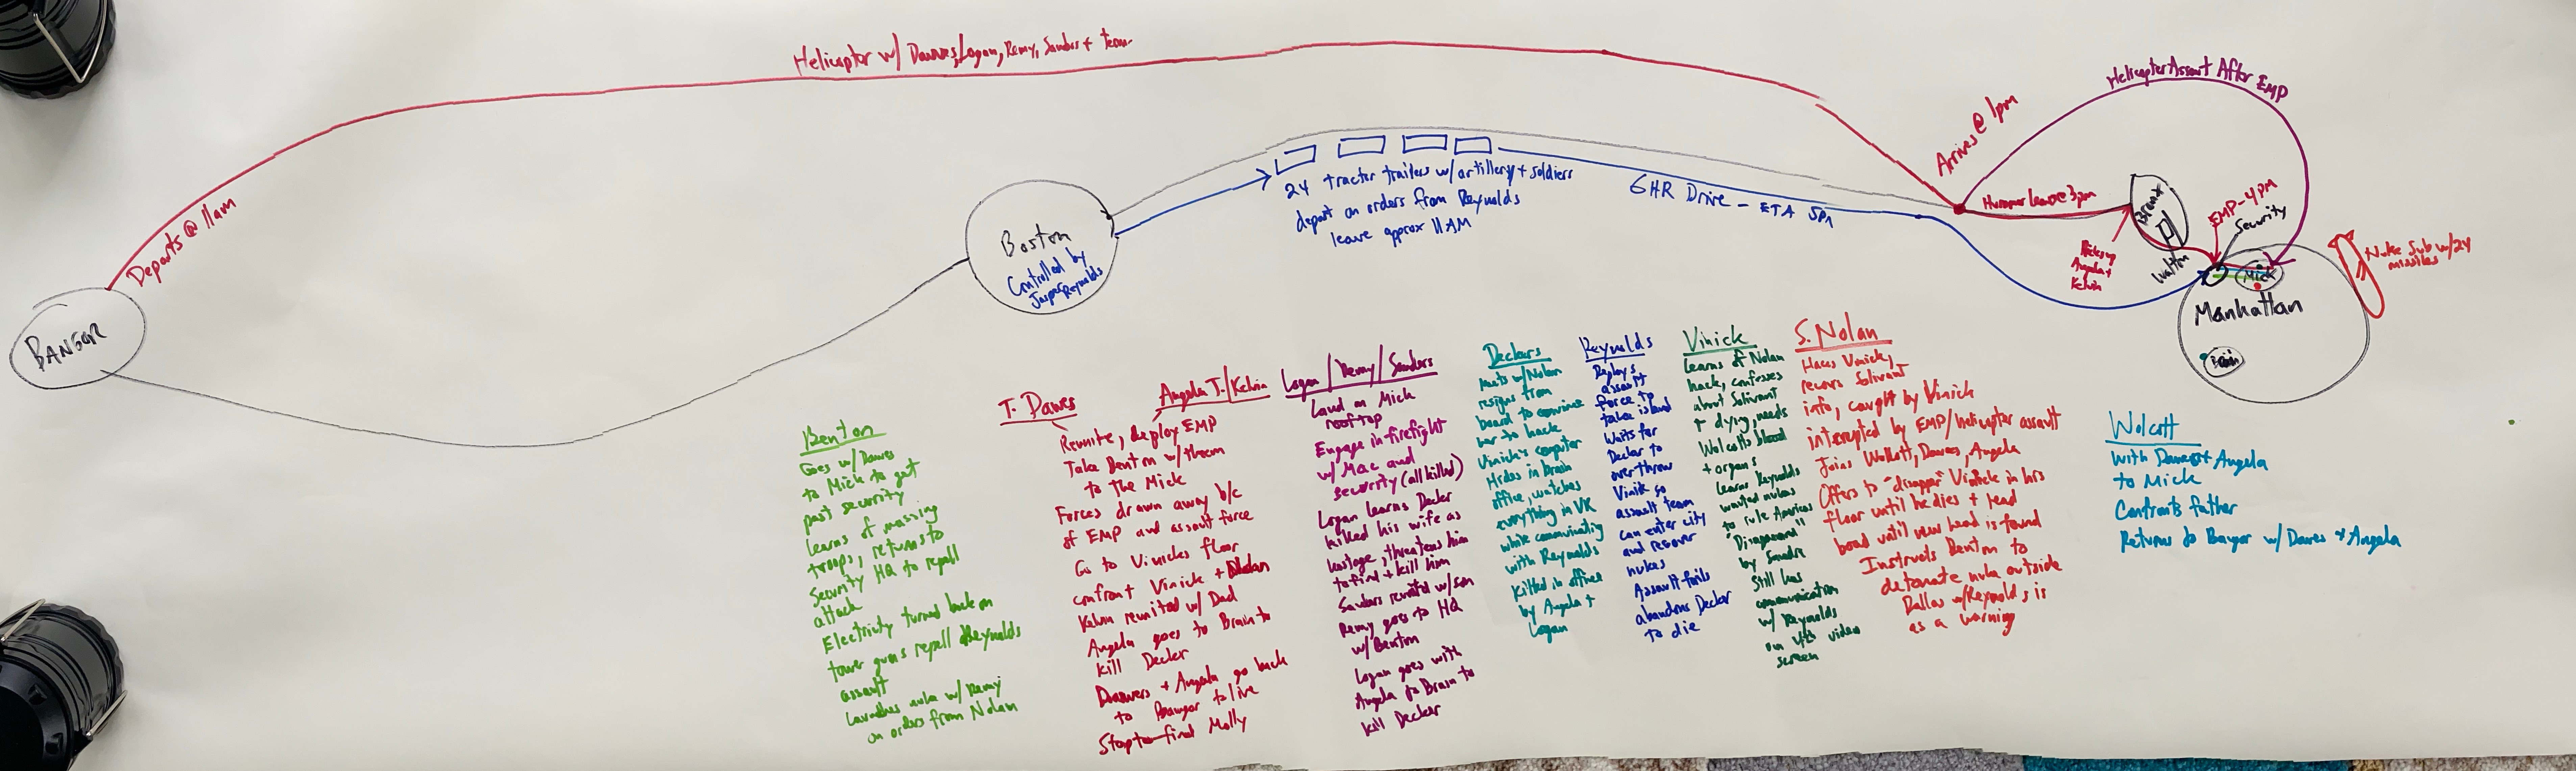 Helicoptor w/ Dawes, Logan, Remy, Sanders + team
Departs @ 11am
BANGOR
Boston
Controlled by
Jasper Reynolds
24 tracter trailers w/ artillery + soldiers
depart on orders from Reynolds
leave approx 11AM
6HR Drive - ETA 5PM
Arrives @ 1pm
Helicopter Assault After EMP
Hummer leave @ 3pm
Picks up
Angela +
Kelvin
Bronx
Walton
EMP-4pm
Security
Mick
Manhattan
Brain
Nuke Sub w/24
missiles
Benton
Goes w/ Dawes
to Mick to get
past security
learns of massing
troops, returns to
security HQ to repell
attack
Electricity turned back on
tower guns repell Reynolds
assault
Launches nuke w/ Remy
on orders from Nolan
T. Dawes
Angela J./Kelvin
Reunite, deploy EMP
Take Benton w/ them
to the Mick
Forces drawn away b/c
of EMP and assault force
Go to Vinicks floor
confront Vinick + Nolan
Kelvin reunited w/ Dad
Angela goes to Brain to
kill Decker
Dawes + Angela go back
to Bangor to live
Stop to find Molly
Logan / Remy / Sanders
Land on Mick
rooftop
Engage in firefight
w/ Mac and
security (all killed)
Logan learns Decker
killed his wife as
hostage, threatens him
to find + kill him
Sanders reunited w/ son
Remy goes to HQ
w/ Benton
Logan goes with
Angela to Brain to
kill Decker
Deckers
meets w/ Nolan
resigns from
board to convince
her to hack
Vinick's computer
Hides in Brain
office, watches
everything in VR
while communicating
with Reynolds
killed in office
by Angela +
Logan
Reynolds
Deploys
assault
force to
take island
Waits for
Decker to
overthrow
Vinik so
assault team
can enter city
and recover
nukes
Assault fails
abandons Decker
to die
Vinick
learns of Nolan
hack, confesses
about Solivant
+ dying, needs
Wolcotts blood
+ organs
learns Reynolds
wanted nukes
to "rule Americas
"Disappeared"
by Sandra
Still has
communication
w/ Reynolds
on video
screen
S. Nolan
Hacks Vinick,
recovers Solivant
info, caught by Vinick
interrupted by EMP/helicopter assault
Joins Wolcott, Dawes, Angela
Offers to "disappear" Vinick in his
floor until he dies + lead
board until new head is found
Instructs Benton to
detonate nuke outside
Dallas w/Reynolds is
as a warning
Wolcott
with Dawes + Angela
to Mick
Confronts father
Returns to Bangor w/ Dawes + Angela